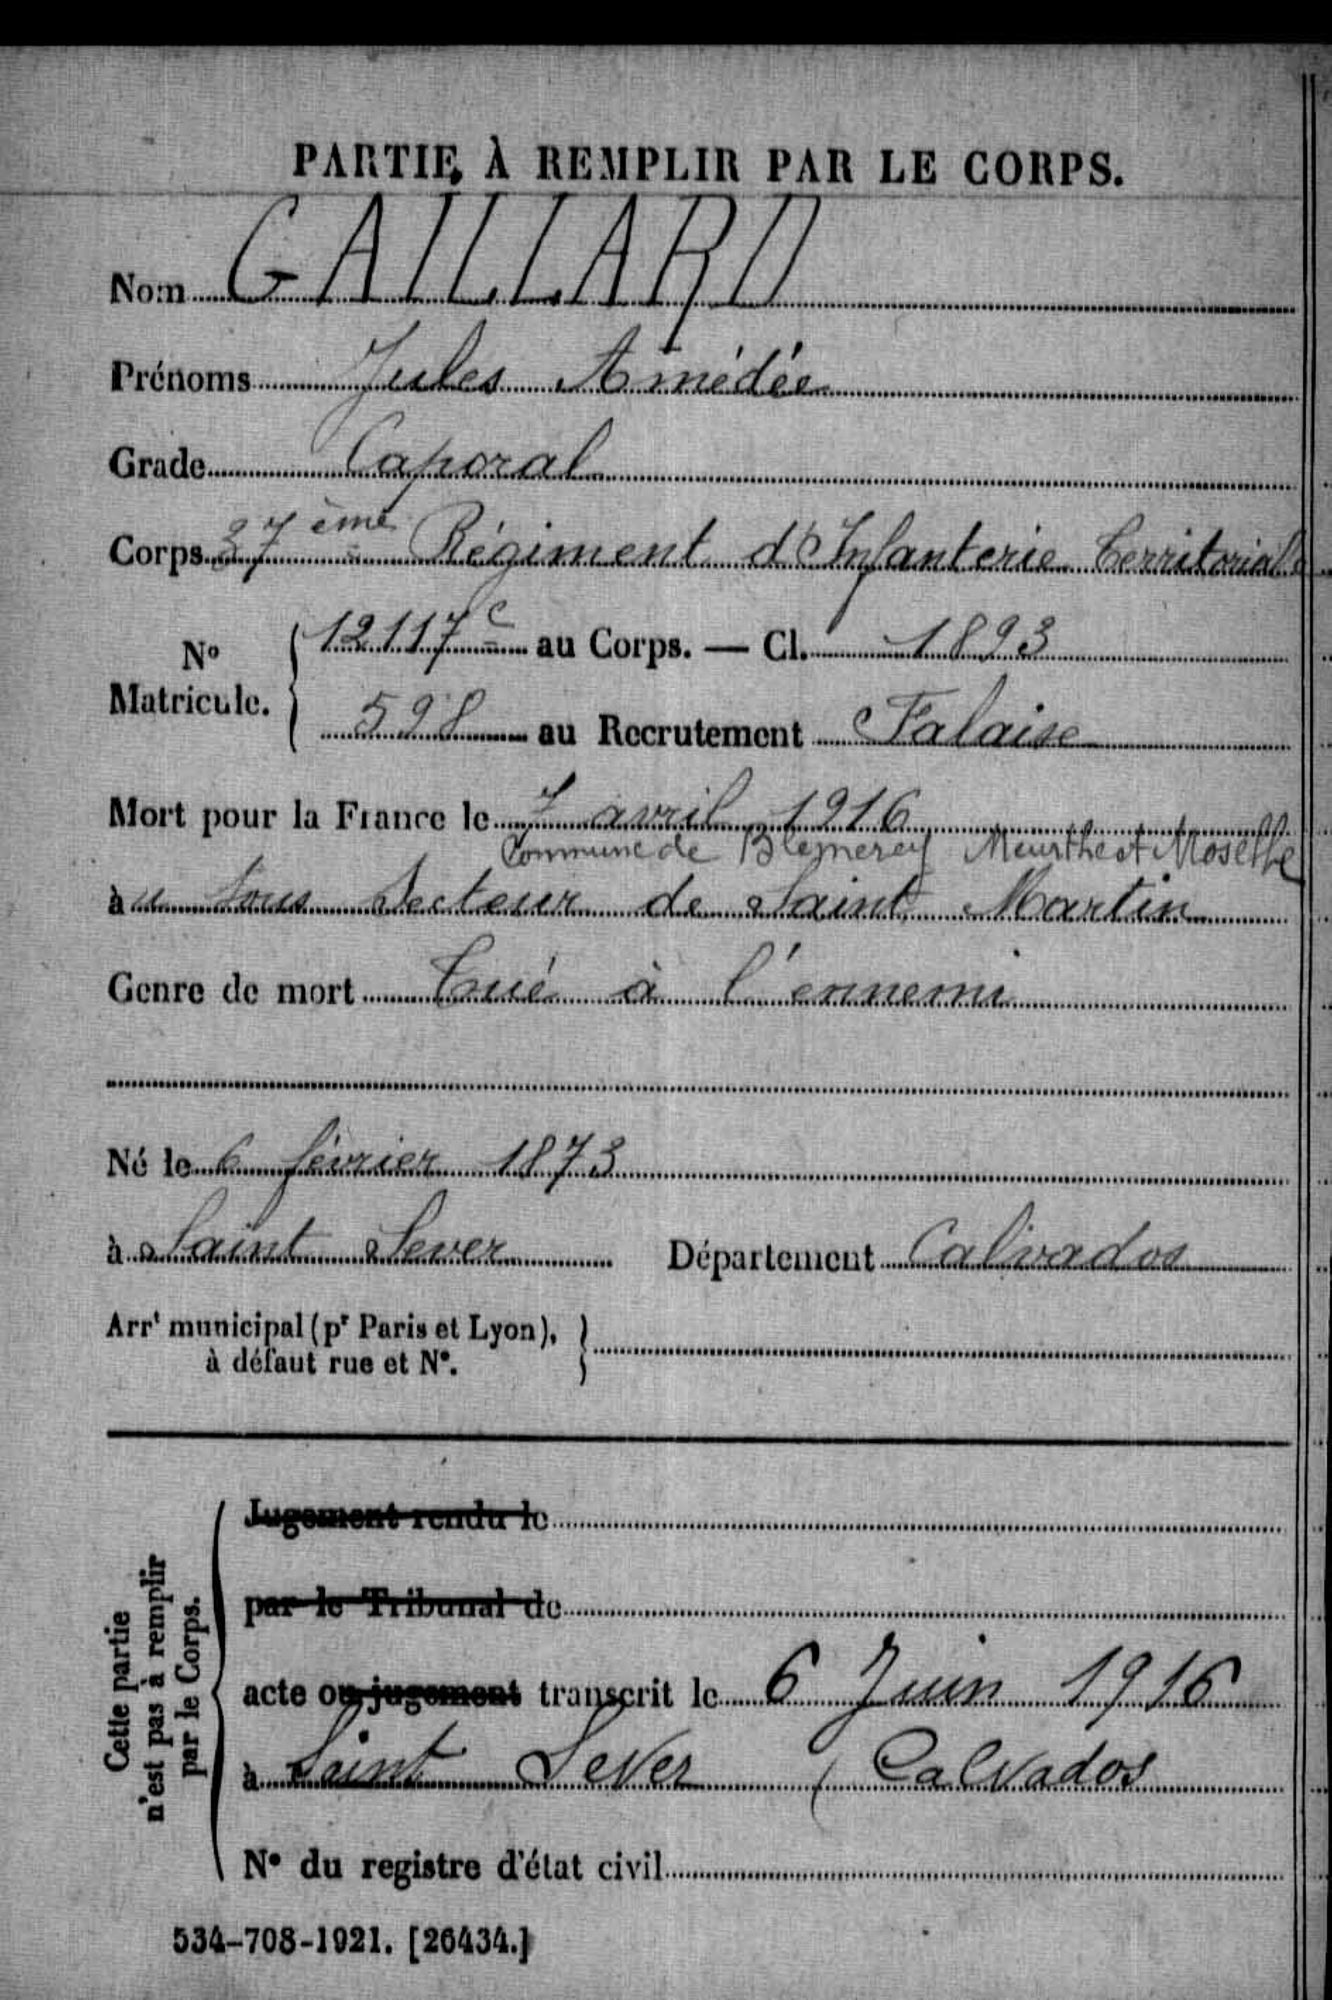 PARTIE À REMPLIR PAR LE CORPS.
Nom GAILLARD
Prénoms Jules Amédée
Grade Caporal
Corps 37ème Régiment d'Infanterie Territoriale
No Matricule. 12117 c au Corps. — Cl. 1893
598 au Recrutement Falaise
Mort pour la France le 7 avril 1916
Commune de Blemerey Meurthe et Moselle
au Sous Secteur de Saint Martin
Genre de mort Tué à l'ennemi
Né le 6 février 1873
à Saint Sever Département Calvados
Arrt municipal (pr Paris et Lyon),
à défaut rue et No.
Cette partie
n'est pas à remplir
par le Corps.
Jugement rendu le
par le Tribunal de
acte ou jugement transcrit le 6 Juin 1916
à Saint Sever (Calvados
No du registre d'état civil
534-708-1921. [26434.]